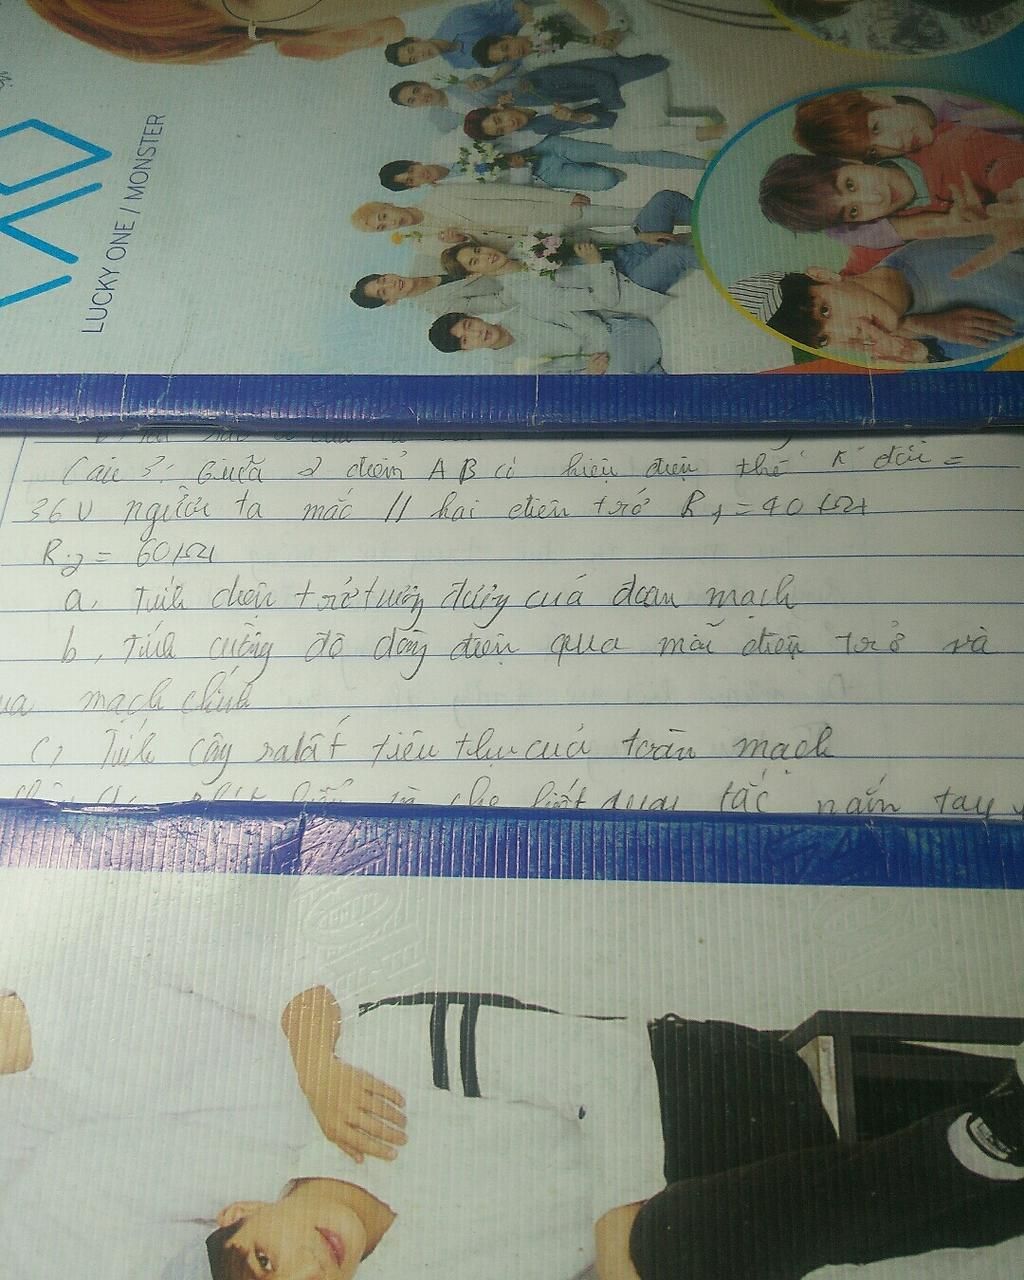 LUCKY ONE / MONSTER
Câu 3: Giữa 2 điểm A B có hiệu điện thế K đổi =
36V người ta mắc // hai điện trở R1 = 40
R2 = 60
a, Tính điện trở tương đương của đoạn mạch
b, Tính cường độ dòng điện qua mỗi điện trở và
ua mạch chính
c, Tính công suất tiêu thụ của toàn mạch
quy tắc nắm tay